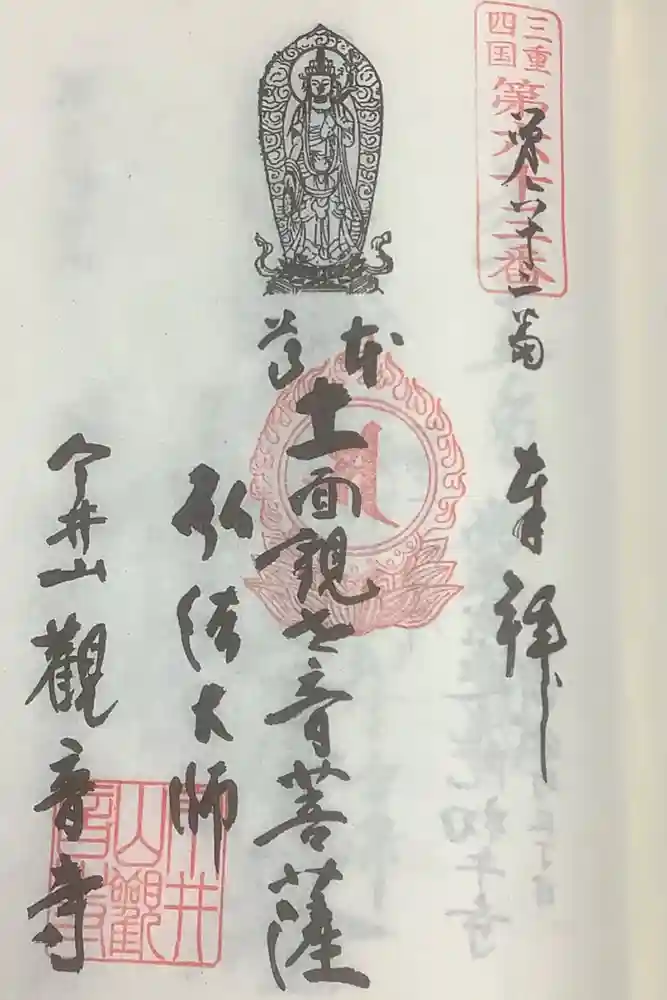 三重
四国
第六十三番
奉拝
本尊
十一面観世音菩薩
弘法大師
今井山
觀音寺
今井
山觀
音寺